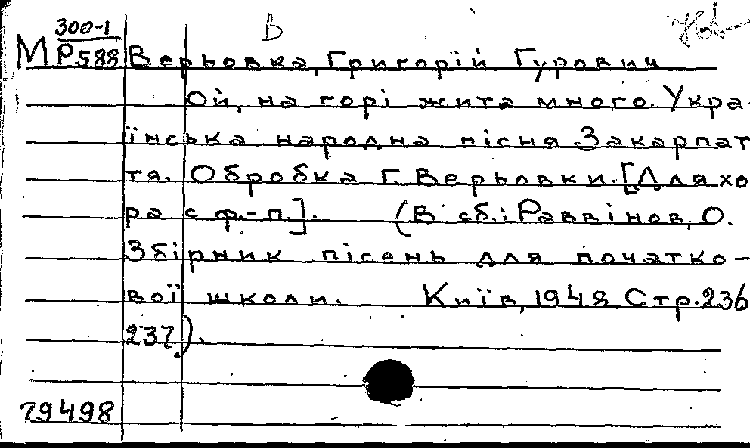 300-1 В
М Р588 Верьовка, Григорій Гурович
Ой, на горі жита много. Укра-
їнська народна пісня Закарпат
тя. Обробка Г. Верьовки. [Для хо
ра с ф-п.]. (В сб.: Раввінов, О.
Збірник пісень для початко-
вої школи. Київ, 1948 Стр. 236
237).
79498